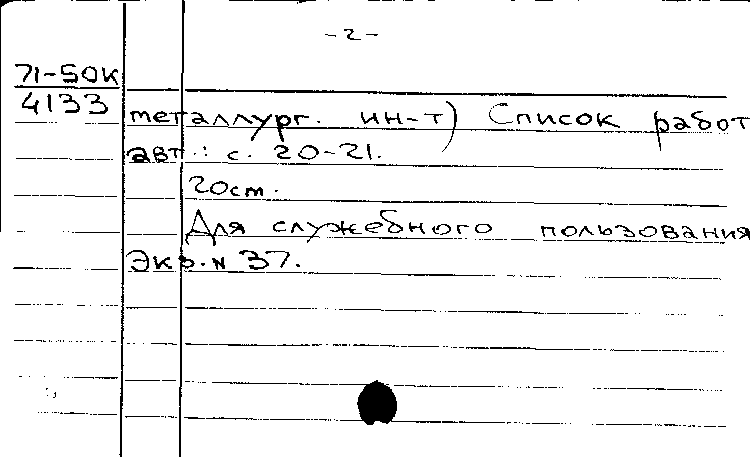 -2-
71-50к
4133
металлург. ин-т) Список работ
авт.: с. 20-21.
20см.
Для служебного пользования
Экз.N 37.